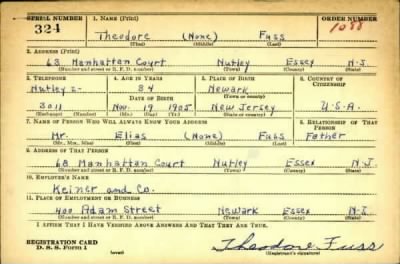 SERIAL NUMBER 1. NAME (Print) ORDER NUMBER
324 Theodore (None) Fuss 1088
(First) (Middle) (Last)
2. ADDRESS (Print)
68 Manhattan Court Nutley Essex N.J.
(Number and street or R. F. D. number) (Town) (County) (State)
3. TELEPHONE 4. AGE IN YEARS 5. PLACE OF BIRTH 6. COUNTRY OF CITIZENSHIP
Nutley 2- 34 Newark
DATE OF BIRTH (Town or county)
3011 Nov. 19 1905 New Jersey U.S.A.
(Mo.) (Day) (Yr.) (State or country)
7. NAME OF PERSON WHO WILL ALWAYS KNOW YOUR ADDRESS 8. RELATIONSHIP OF THAT PERSON
Mr. Elias (None) Fuss Father
(Mr., Mrs., Miss) (First) (Middle) (Last)
9. ADDRESS OF THAT PERSON
68 Manhattan Court Nutley Essex N.J.
(Number and street or R. F. D. number) (Town) (County) (State)
10. EMPLOYER'S NAME
Keiner and Co.
11. PLACE OF EMPLOYMENT OR BUSINESS
400 Adam Street Newark Essex N.J.
(Number and street or R. F. D. number) (Town) (County) (State)
I AFFIRM THAT I HAVE VERIFIED ABOVE ANSWERS AND THAT THEY ARE TRUE.
REGISTRATION CARD
D. S. S. Form 1 (over) Theodore Fuss
(Registrant's signature)